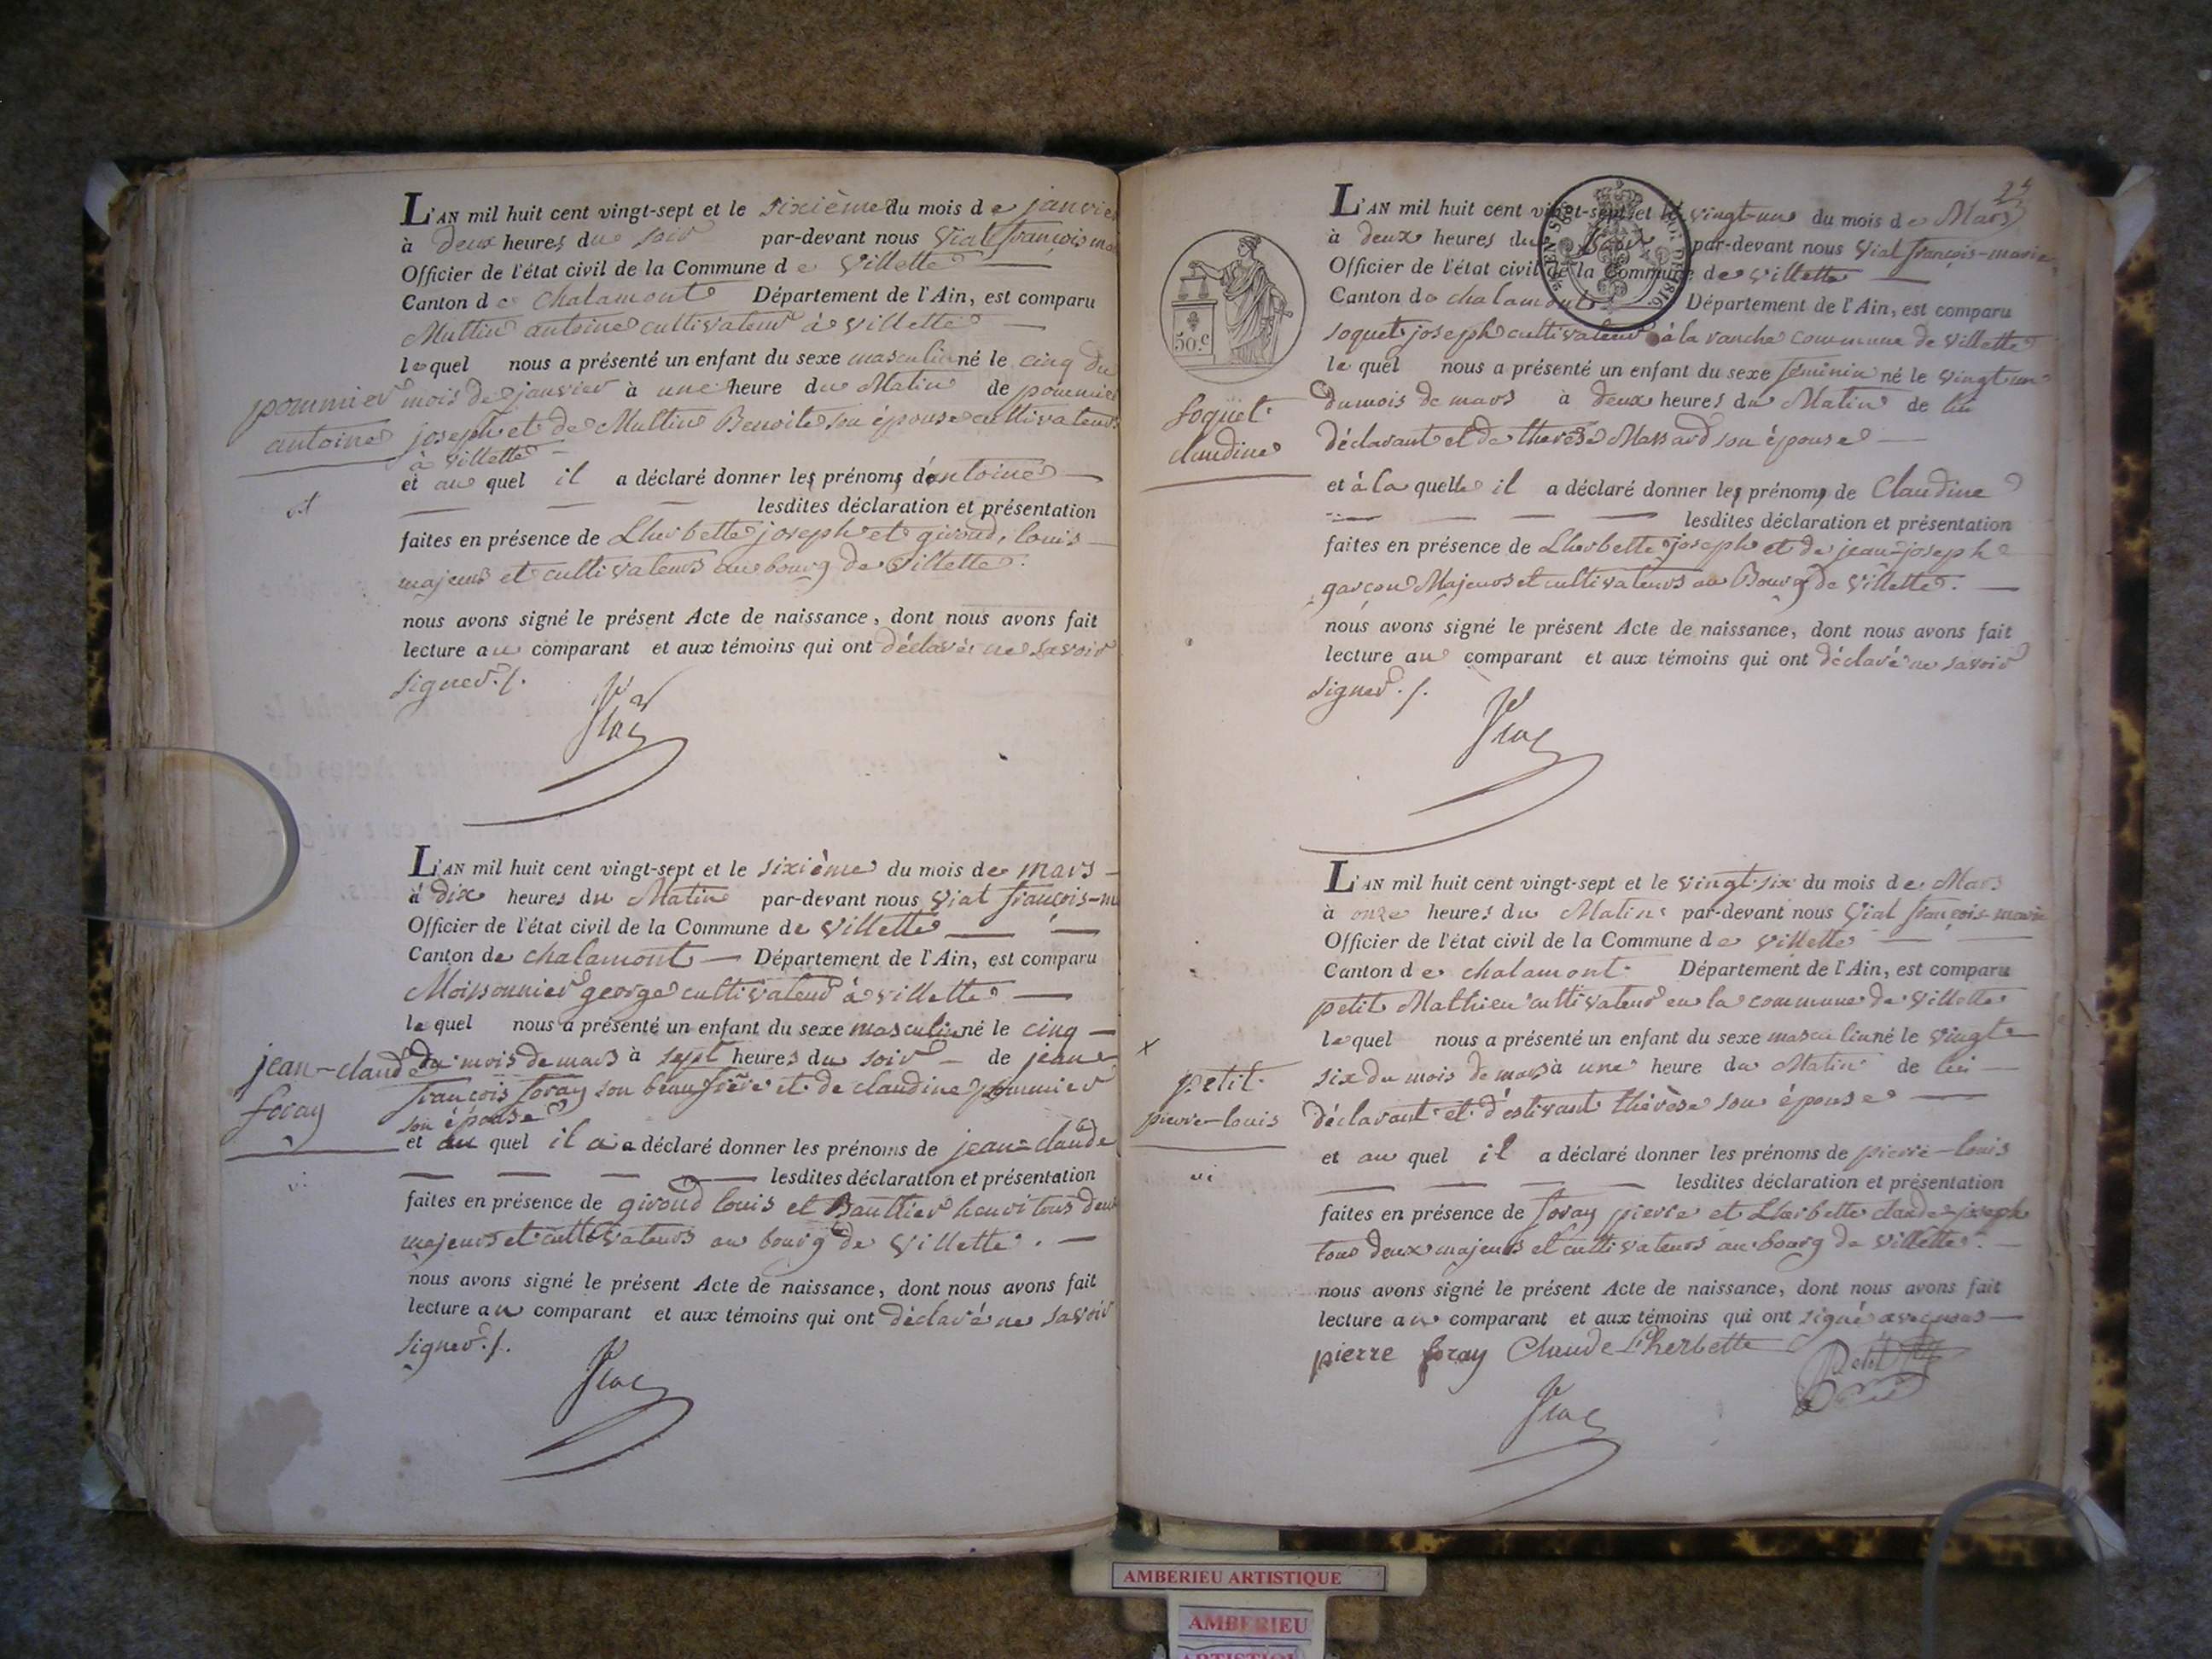 L'AN mil huit cent vingt-sept et le sixième du mois de janvier
à deux heures du soir par-devant nous Vial françois ma
Officier de l'état civil de la Commune de Villette
Canton de chalamont Département de l'Ain, est comparu
Multin antoine cultivateur à villette
lequel nous a présenté un enfant du sexe masculin né le cinq du
mois de janvier à une heure du Matin de pommier
joseph et de Multin Benoite son épouse cultivateurs
à villette
et au quel il a déclaré donner les prénoms d'antoine
lesdites déclaration et présentation
faites en présence de Lherbette joseph et giroud, louis
majeurs et cultivateurs au bourg de Villette.
nous avons signé le présent Acte de naissance, dont nous avons fait
lecture au comparant et aux témoins qui ont déclaré ne savoir
signer ./.
Vial
pommier
antoine
L'AN mil huit cent vingt-sept et le sixième du mois de mars
à dix heures du Matin par-devant nous Vial françois-m
Officier de l'état civil de la Commune de Villette
Canton de chalamont Département de l'Ain, est comparu
Moissonnier george cultivateur à villette
lequel nous a présenté un enfant du sexe masculin né le cinq
du mois de mars à sept heures du soir de jean
françois foray son beau frère et de claudine pommier
son épouse
et au quel il a a déclaré donner les prénoms de jean-claude
lesdites déclaration et présentation
faites en présence de giroud louis et Bauttier henri tous deux
majeurs et cultivateurs au bourg de Villette.
nous avons signé le présent Acte de naissance, dont nous avons fait
lecture au comparant et aux témoins qui ont déclaré ne savoir
signer ./.
Vial
jean-claude
foray
L'AN mil huit cent vingt-sept et le vingt-un du mois de Mars
à deux heures du soir par-devant nous Vial françois-marie
Officier de l'état civil de la Commune de villette
Canton de chalamont Département de l'Ain, est comparu
soquet joseph cultivateur à la ranche commune de villette
le quel nous a présenté un enfant du sexe féminin né le vingt un
du mois de mars à deux heures du Matin de lui
déclarant et de therese Massard son épouse
et à la quelle il a déclaré donner les prénoms de Claudine
lesdites déclaration et présentation
faites en présence de Lherbette joseph et de jean-joseph
garçon Majeurs et cultivateurs au Bourg de villette.
nous avons signé le présent Acte de naissance, dont nous avons fait
lecture au comparant et aux témoins qui ont déclaré ne savoir
signer ./.
Vial
50.c
soquet
claudine
L'AN mil huit cent vingt-sept et le vingt-six du mois de Mars
à onze heures du Matin par-devant nous Vial françois-marie
Officier de l'état civil de la Commune de villette
Canton de chalamont Département de l'Ain, est comparu
petit Mathieu cultivateur en la commune de villette
lequel nous a présenté un enfant du sexe masculin né le vingt
six du mois de mars à une heure du Matin de lui
déclarant et d'estivant thérèse son épouse
et au quel il a déclaré donner les prénoms de pierre-louis
lesdites déclaration et présentation
faites en présence de foray pierre et Lherbette claude-joseph
tous deux majeurs et cultivateurs au bourg de villette.
nous avons signé le présent Acte de naissance, dont nous avons fait
lecture au comparant et aux témoins qui ont signé avec nous
pierre foray Claude Lherbette Petit
Vial
petit
pierre-louis
AMBERIEU ARTISTIQUE
AMBERIEU
ARTISTIQUE